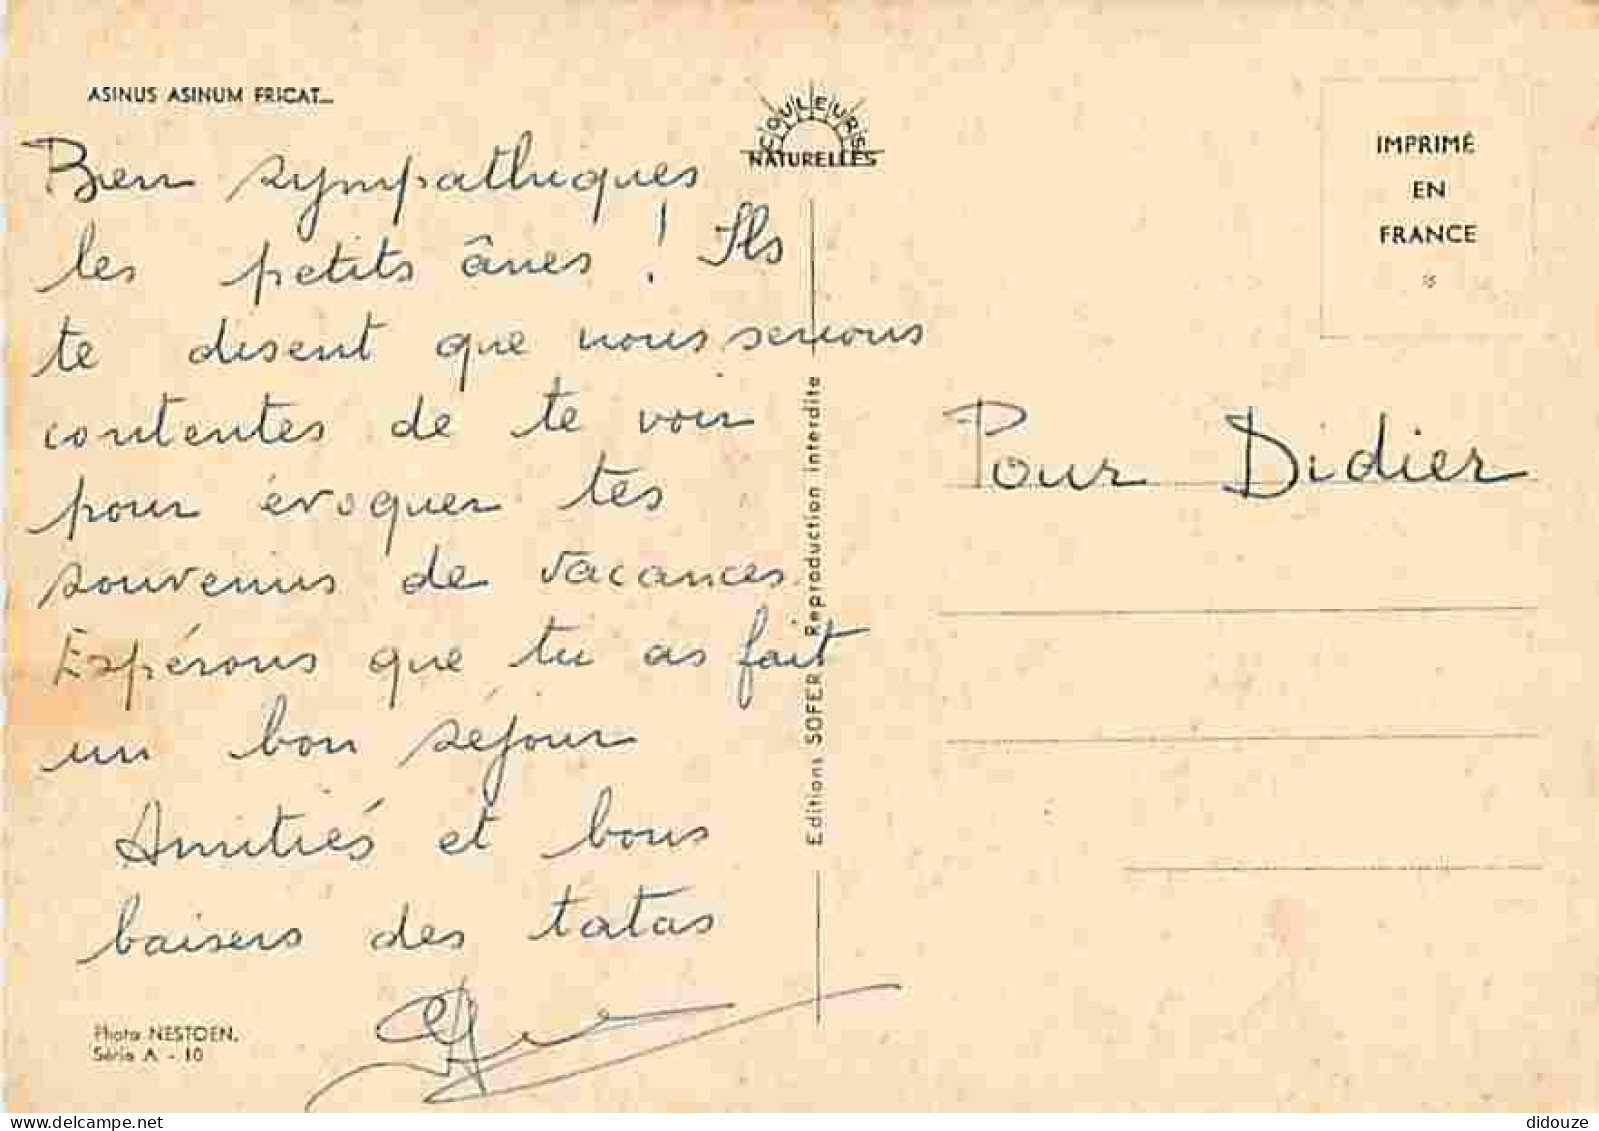 ASINUS ASINUM FRICAT...
Bien sympathiques
les petits ânes ! Ils
te disent que nous serions
contentes de te voir
pour évoquer tes
souvenirs de vacances.
Espérons que tu as fait
un bon séjour
Amitiés et bons
baisers des tatas
Photo NESTOEN.
Série A - 10
COULEURS
NATURELLES
Editions SOFER Reproduction interdite
IMPRIMÉ
EN
FRANCE
*
Pour Didier
delcampe.net
didouze